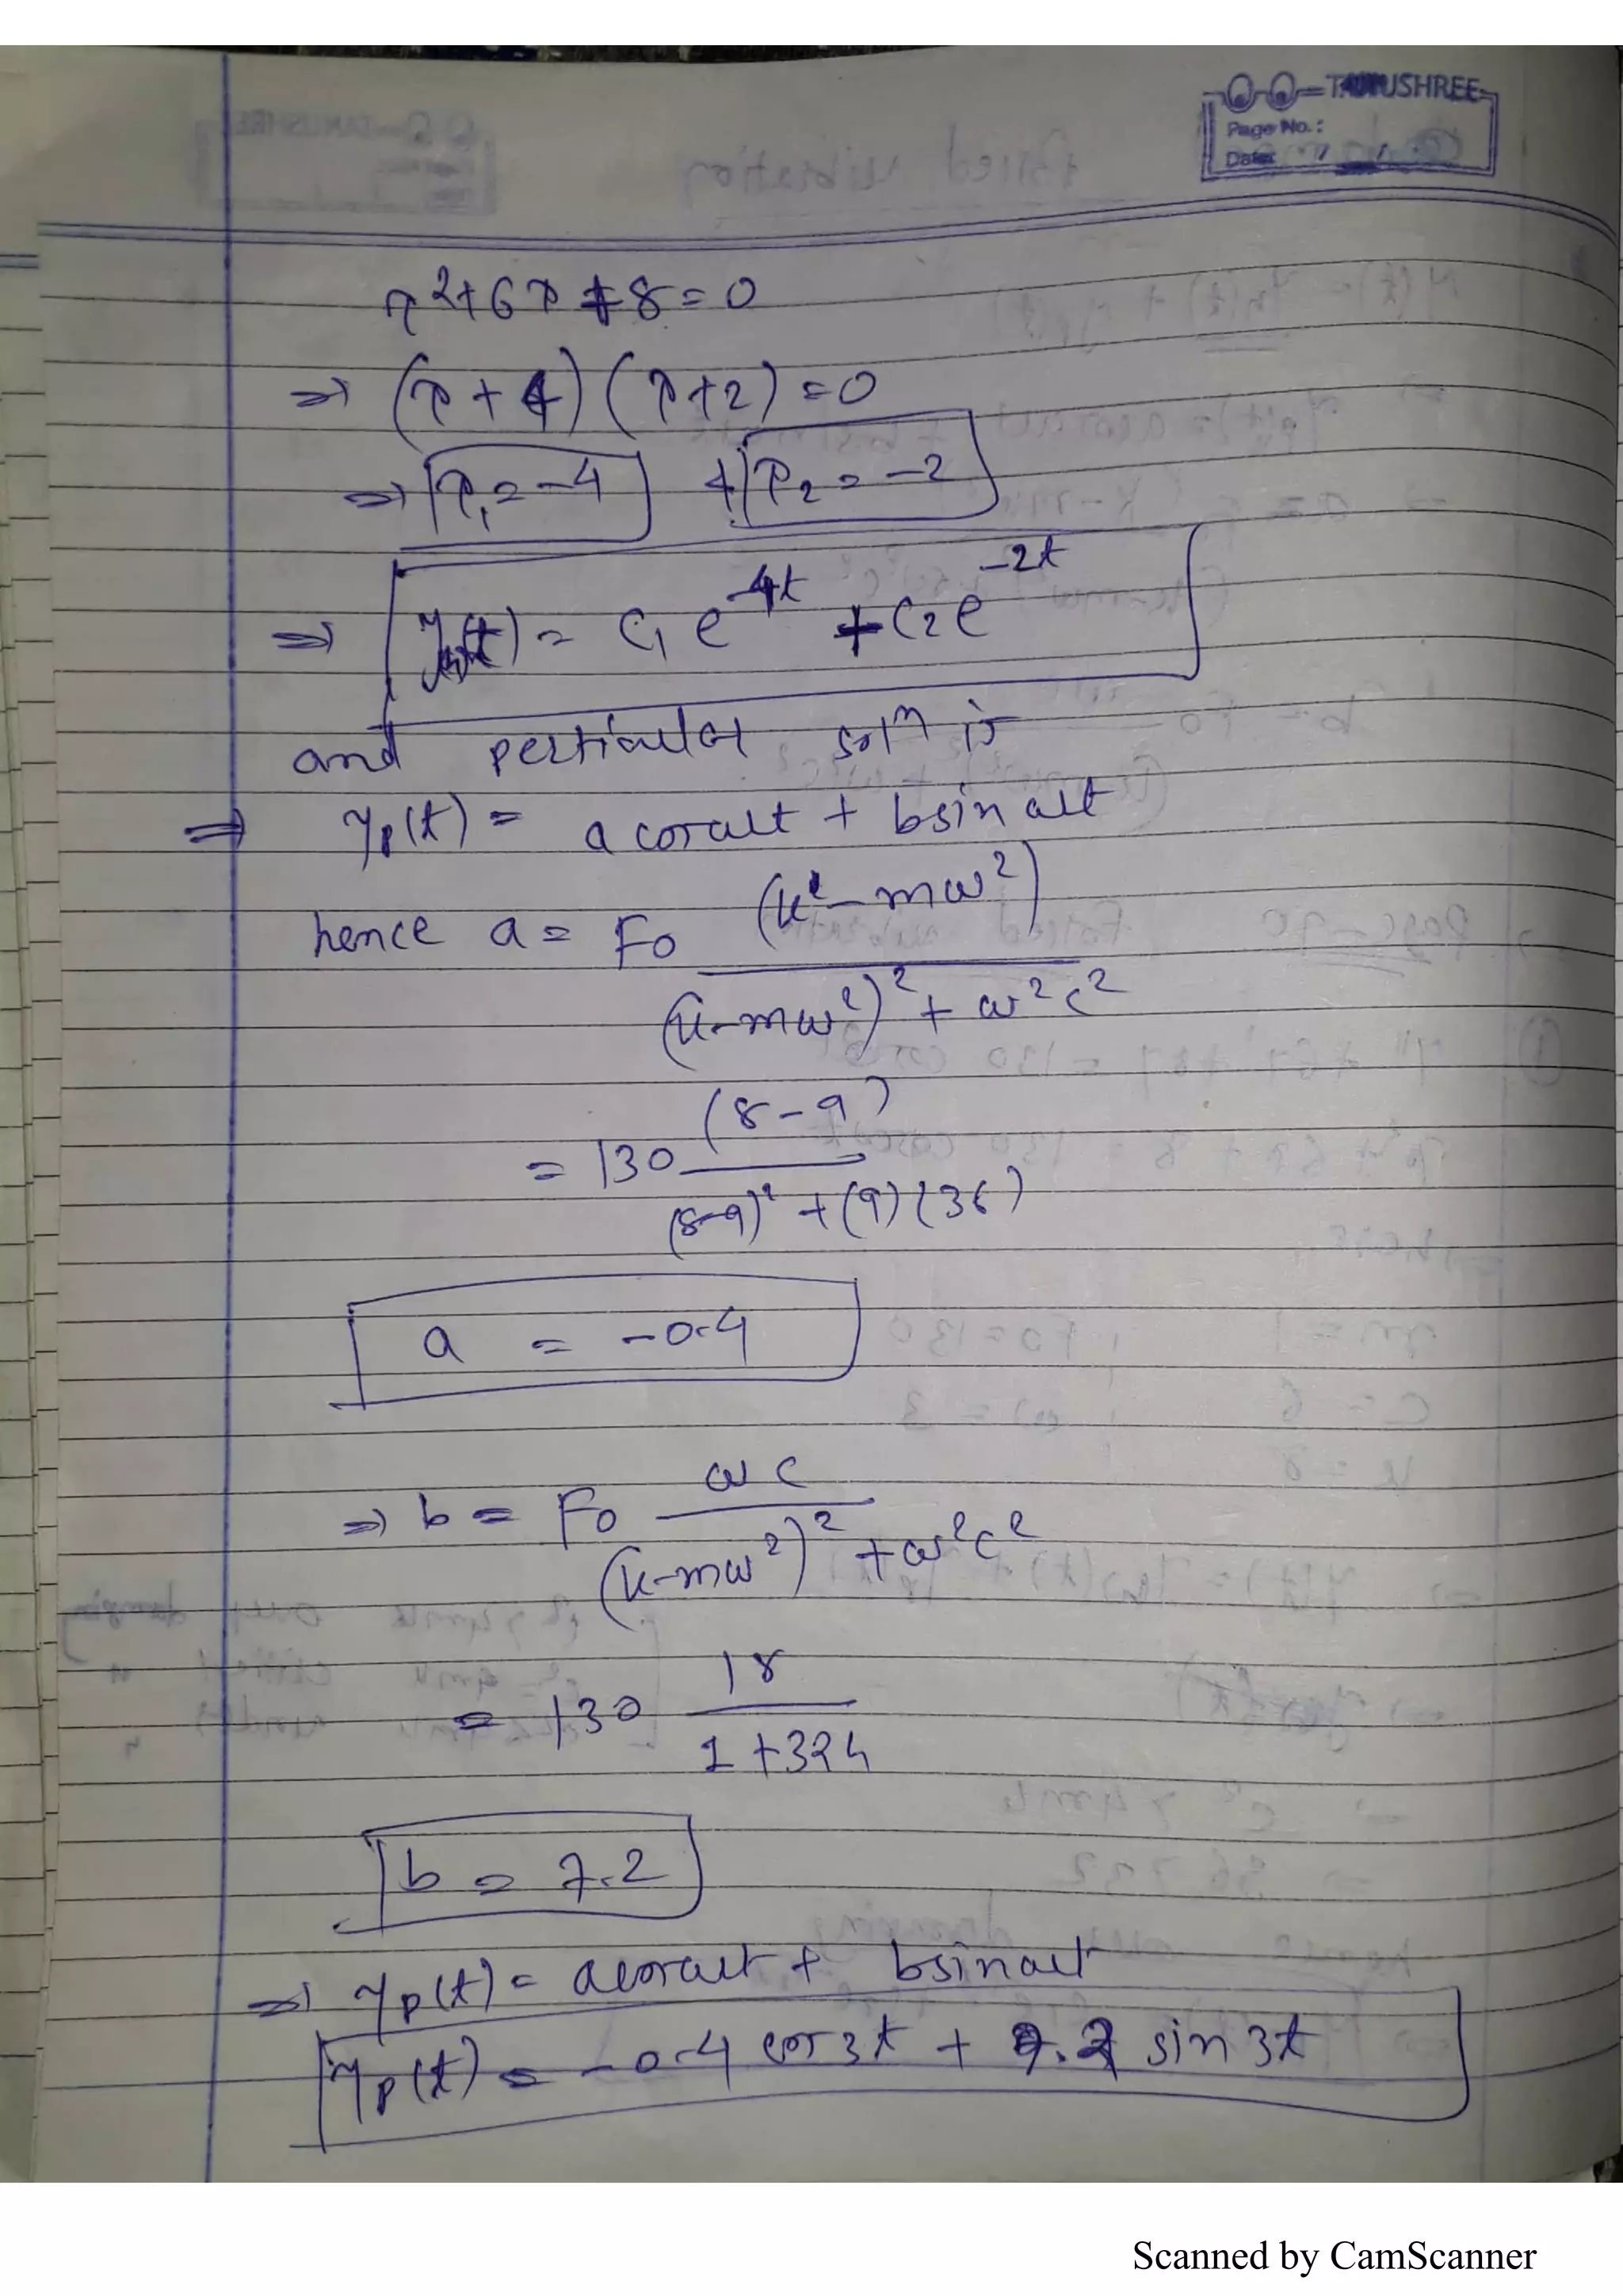 TANUSHREE
Page No.:
Date: / /
r² + 6r + 8 = 0
⇒ (r + 4) (r + 2) = 0
⇒ r₁ = -4 & r₂ = -2
⇒ yₕ(t) = C₁ e^-4t + C₂ e^-2t
and perticular solⁿ is
⇒ yp(t) = a cosωt + b sin ωt
hence a = F0 (k - mω²) / (k - mω²)² + ω²c²
= 130 (8-9) / (8-9)² + (9)(36)
a = -0.4
⇒ b = F0 ωc / (k - mω²)² + ω²c²
= 130 18 / 1 + 324
b = 7.2
⇒ yp(t) = a cosωt + b sinωt
yp(t) = -0.4 cos 3t + 7.2 sin 3t
Scanned by CamScanner